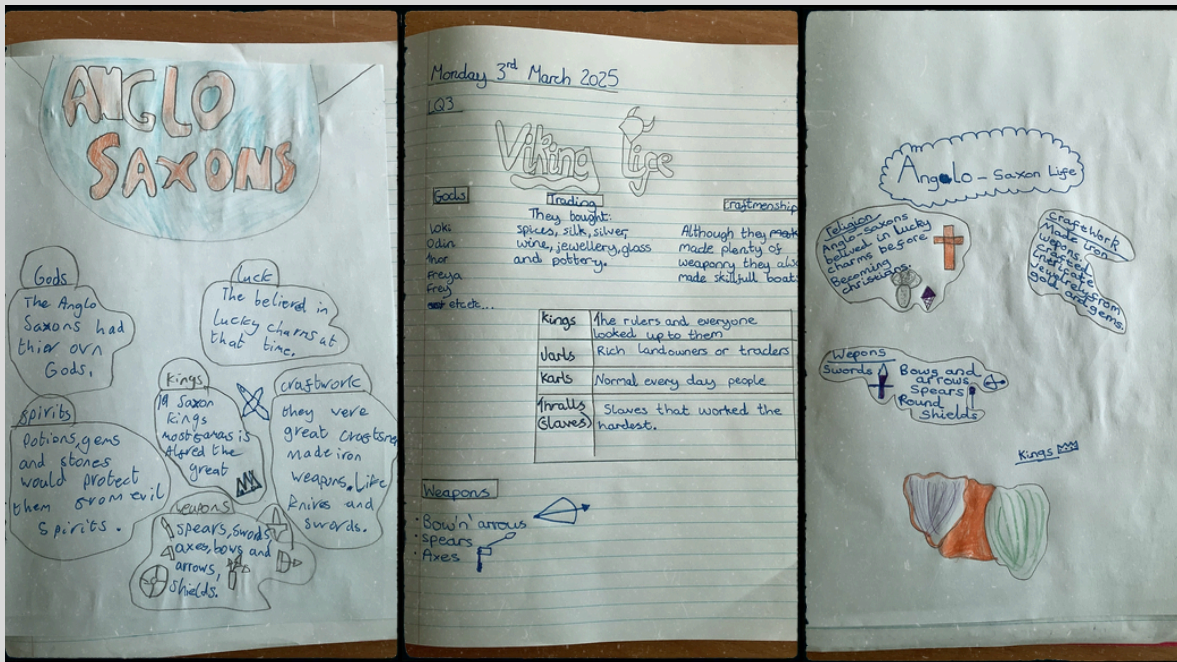 ANGLO
SAXONS
Gods
The Anglo
Saxons had
thier own
Gods.
luck
The believed in
lucky charms at
that time.
spirits
Potions,gems
and stones
would protect
them from evil
spirits.
Kings
19 Saxon
kings
most famas is
Alfred the
great
craftwork
they were
great craftsme
made iron
weapons. Like
knives and
swords.
weapons
spears, swords,
axes, bows and
arrows,
shields.
Monday 3rd March 2025
LQ3
Viking Life
Gods
Loki
Odin
Thor
Freya
Frey
etc etc...
Trading
They bought:
spices, silk, silver,
wine, jewellery, glass
and pottery.
Craftmenship
Although they
made plenty of
weaponry they also
made skillfull boats
Kings
The rulers and everyone
looked up to them
Jarls
Rich landowners or traders
Karls
Normal every day people
Thralls
(slaves)
Slaves that worked the
hardest.
Weapons
• Bow 'n' arrows
• spears
• Axes
Anglo - Saxon Life
religion
Anglo-Saxons
belived in lucky
charms before
Becoming
christians.
craftwork
Made iron
wepons.
crafted
intricate
jewelry from
gold and gems.
Wepons
Swords
Bows and
arrows
Spears
Round
Shields
Kings